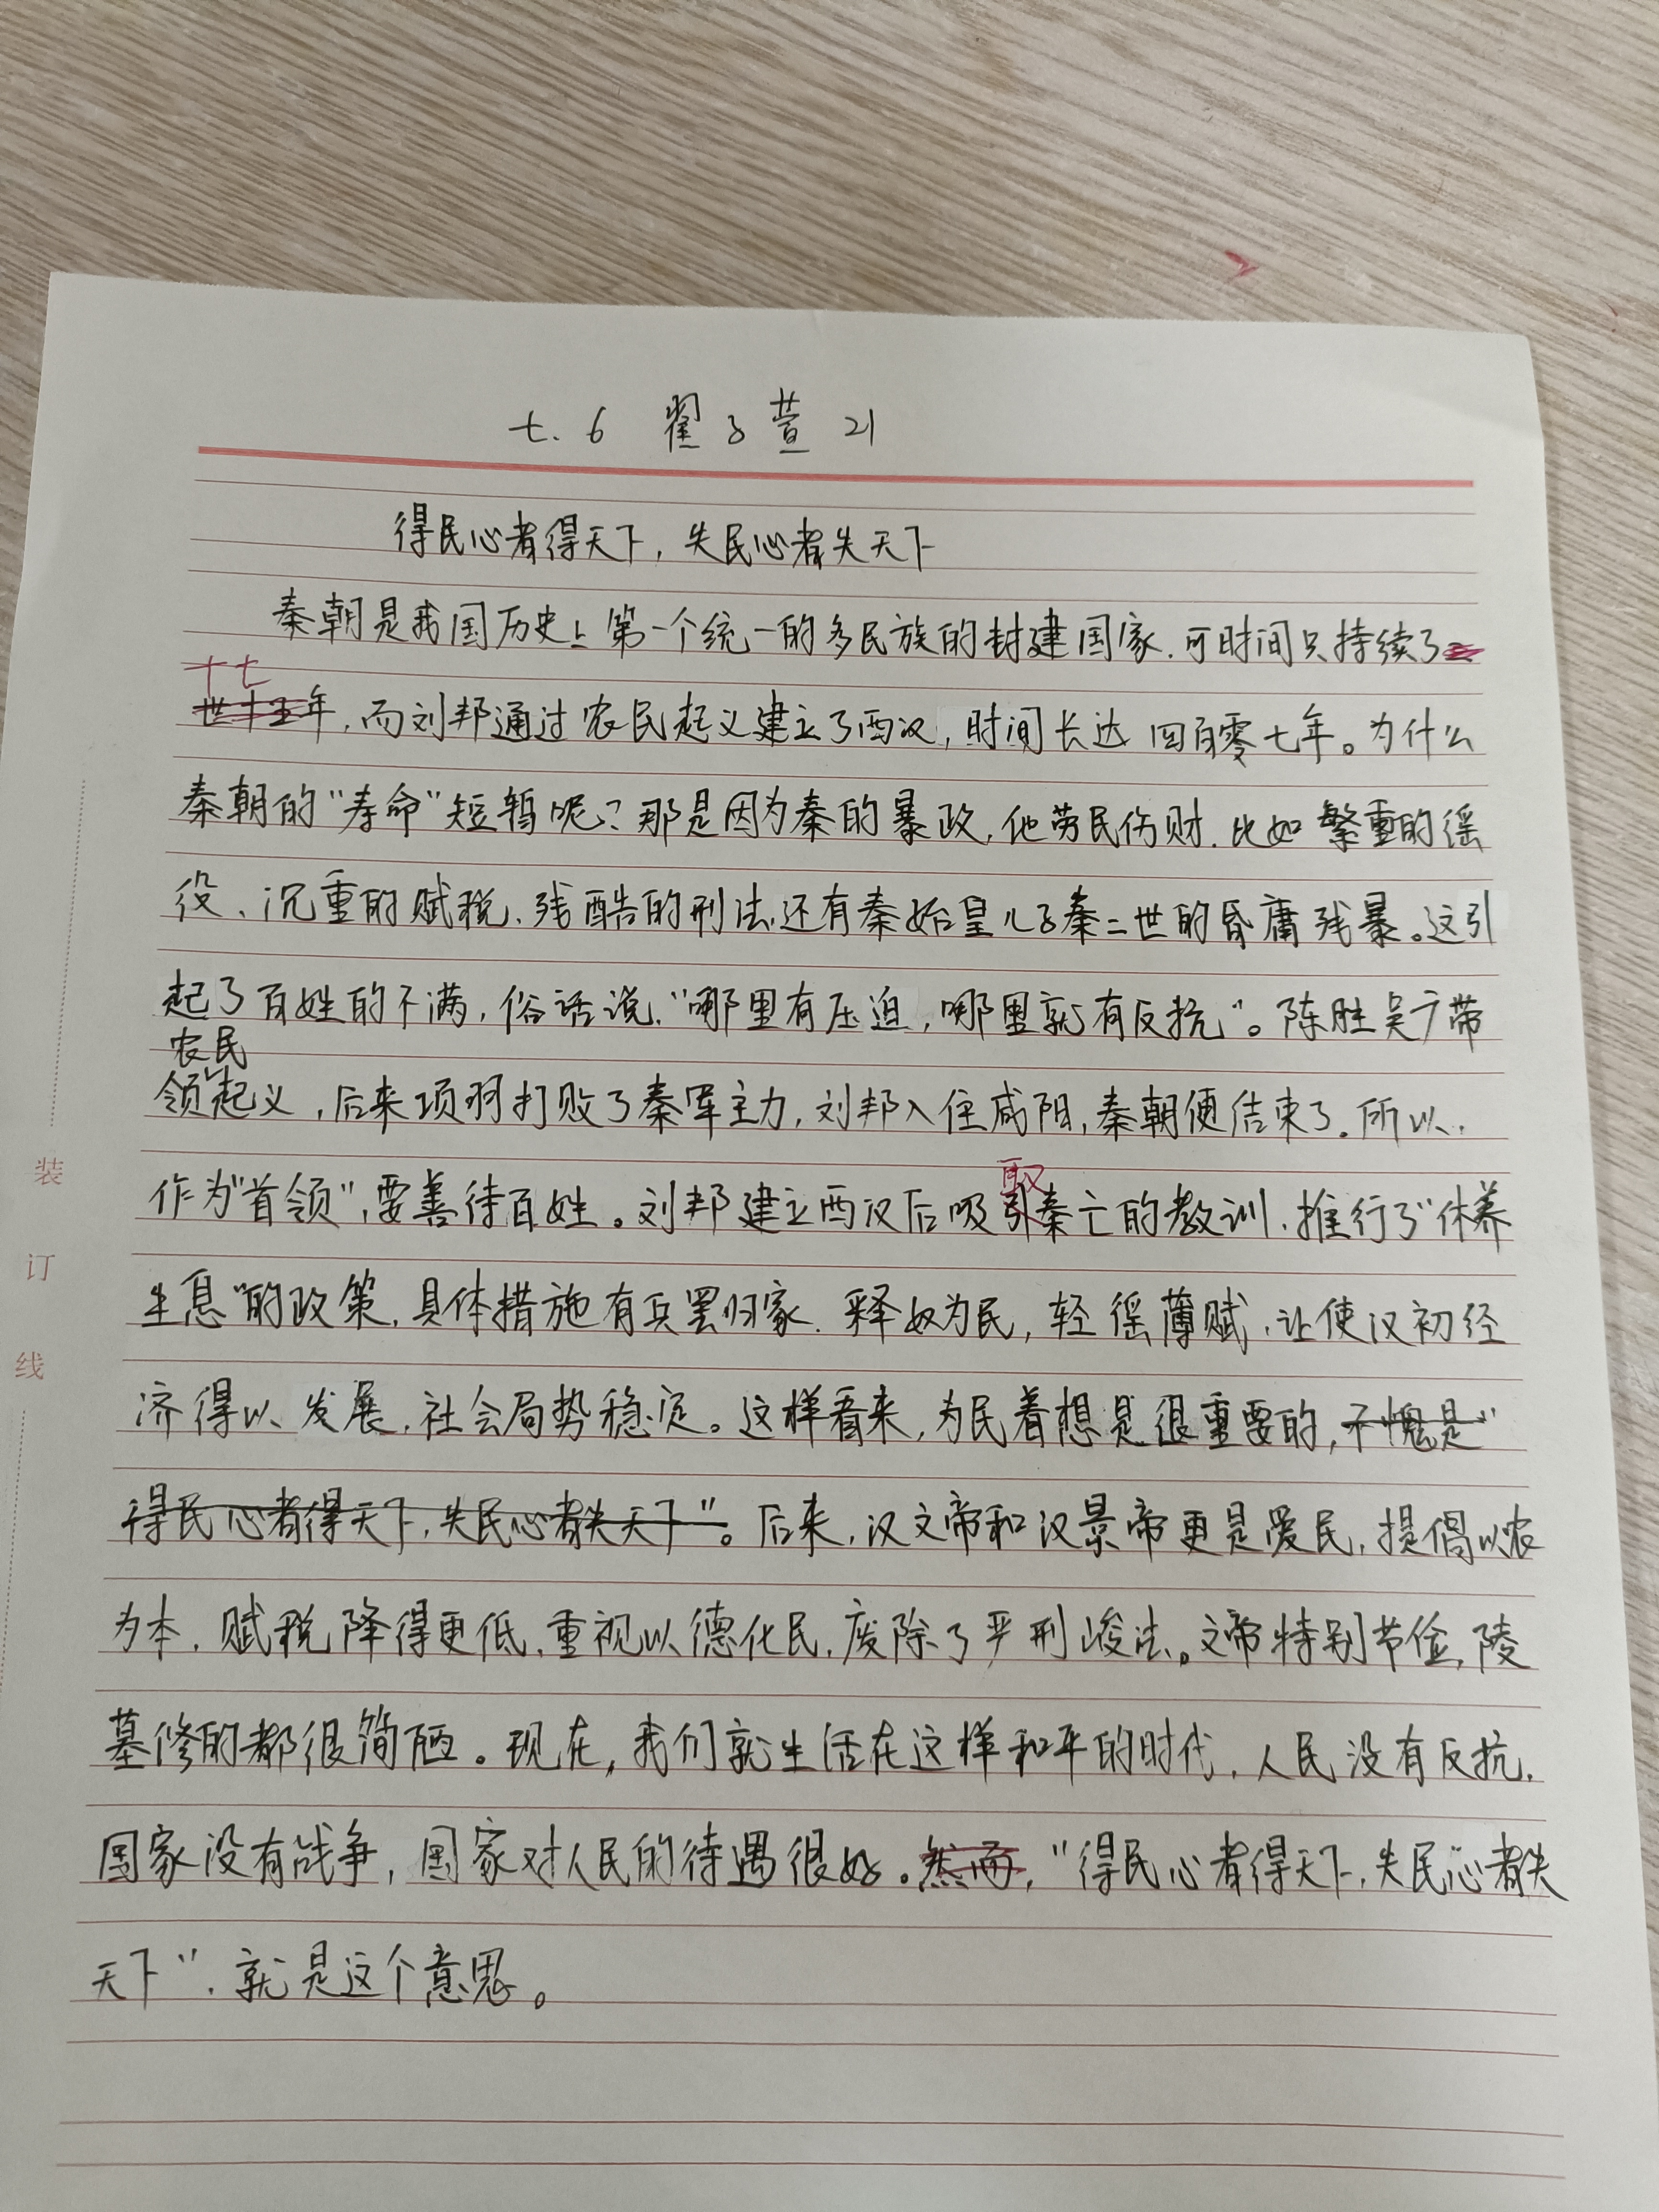 七.6 翟子萱 21
得民心者得天下,失民心者失天下
秦朝是我国历史上第一个统一的多民族的封建国家.可时间只持续了
十七
年,而刘邦通过农民起义建立了西汉,时间长达四百零七年。为什么
秦朝的"寿命"短暂呢?那是因为秦的暴政,他劳民伤财.比如繁重的徭
役、沉重的赋税、残酷的刑法,还有秦始皇儿子秦二世的昏庸残暴。这引
起了百姓的不满,俗话说,"哪里有压迫,哪里就有反抗"。陈胜吴广带
农民
领起义,后来项羽打败了秦军主力,刘邦入住咸阳,秦朝便结束了.所以,
取
作为"首领",要善待百姓。刘邦建立西汉后吸引秦亡的教训,推行了"休养
生息"的政策,具体措施有兵罢归家.释奴为民,轻徭薄赋,让使汉初经
济得以发展,社会局势稳定。这样看来,为民着想是很重要的,不愧是"
得民心者得天下,失民心者失天下"。后来,汉文帝和汉景帝更是爱民,提倡以农
为本,赋税降得更低,重视以德化民,废除了严刑峻法。文帝特别节俭,陵
墓修的都很简陋。现在,我们就生活在这样和平的时代,人民没有反抗,
国家没有战争,国家对人民的待遇很好。然而,"得民心者得天下,失民心者失
天下",就是这个意思。
装
订
线